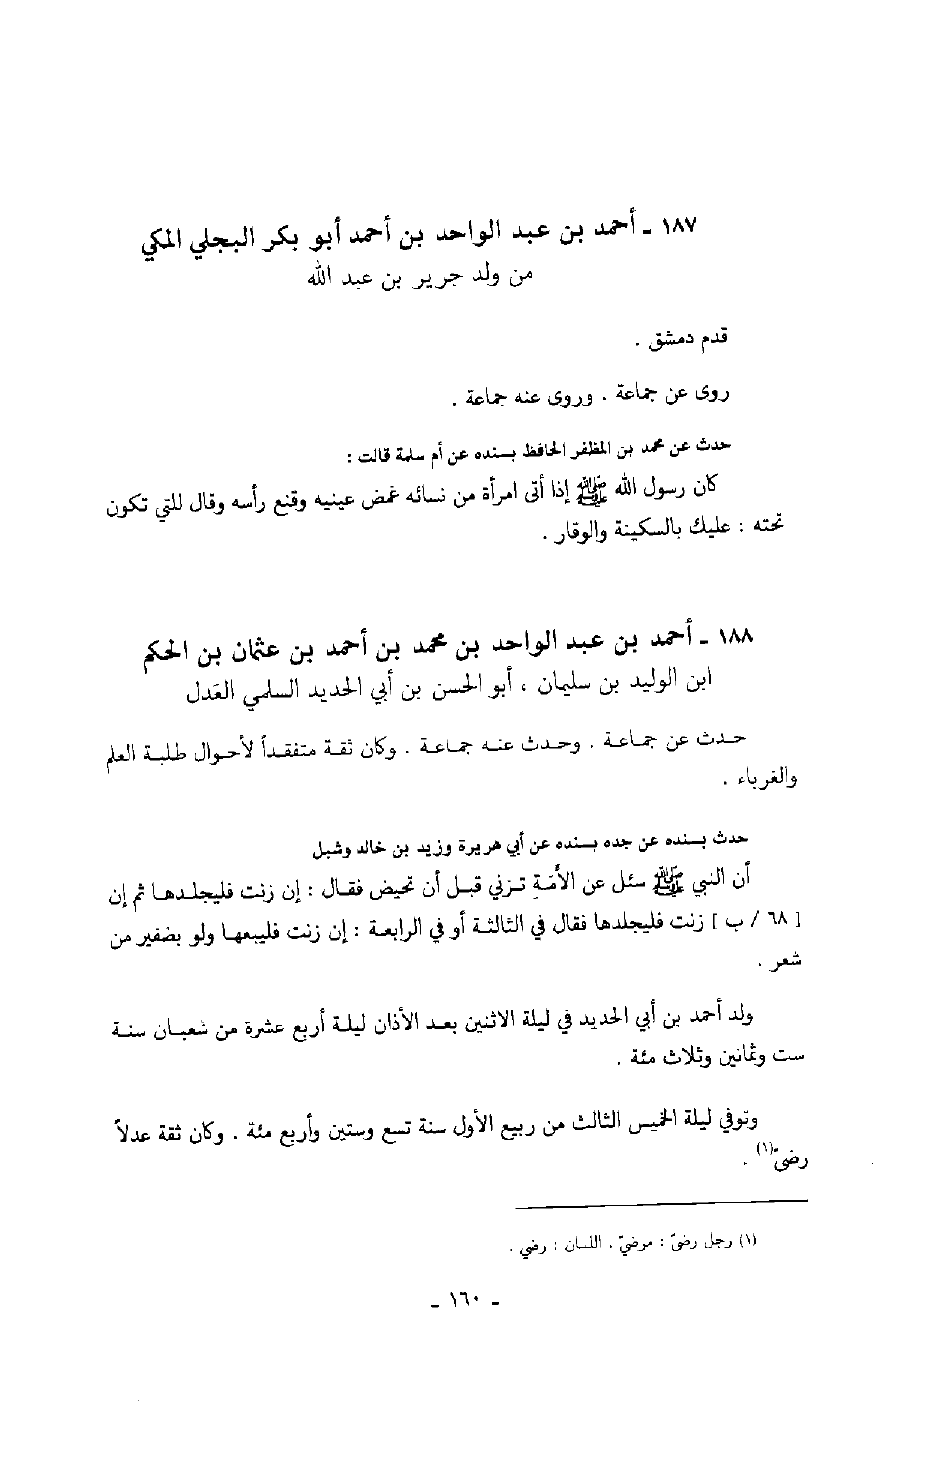 ١٨٧ ـ أحمد بن عبد الواحد بن أحمد أبو بكر البجلي المكي
من ولد جرير بن عبد الله
قدم دمشق .
روى عن جماعة . وروى عنه جماعة .
حدث عن محمد بن المظفر الحافظ بسنده عن أم سلمة قالت :
كان رسول الله ﷺ إذا أتى امرأة من نسائه غمض عينيه وقنع رأسه وقال للتي تكون
تحته : عليك بالسكينة والوقار .
١٨٨ ـ أحمد بن عبد الواحد بن محمد بن أحمد بن عثمان بن الحكم
ابن الوليد بن سليمان ، أبو الحسن بن أبي الحديد السلمي العَدل
حدث عن جماعة . وحدث عنه جماعة . وكان ثقة متفقداً لأحوال طلبة العلم
والغرباء .
حدث بسنده عن جده بسنده عن أبي هريرة وزيد بن خالد وشبل
أن النبي ﷺ سئل عن الأَمَةِ تزني قبل أن تحيض فقال : إن زنت فليجلدها ثم إن
[ ٦٨ / ب ] زنت فليجلدها فقال في الثالثة أو في الرابعة : إن زنت فليبعها ولو بضفير من
شعر .
ولد أحمد بن أبي الحديد في ليلة الاثنين بعد الأذان ليلة أربع عشرة من شعبان سنة
ست وثمانين وثلاث مئة .
وتوفي ليلة الخميس الثالث من ربيع الأول سنة تسع وستين وأربع مئة . وكان ثقة عدلاً
رضىً(١) .
(١) رجل رضىً : مرضيّ . اللسان : رضي .
ـ ١٦٠ ـ